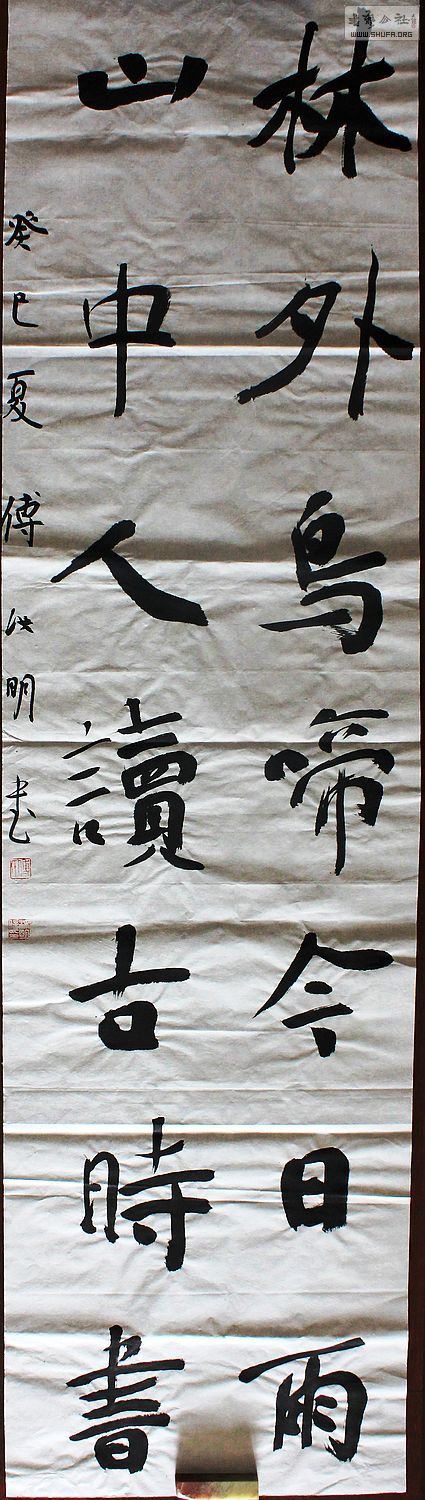 林外鸟啼今日雨
山中人讀古時書
癸巳夏傅洪明书
WWW.SHUFA.ORG